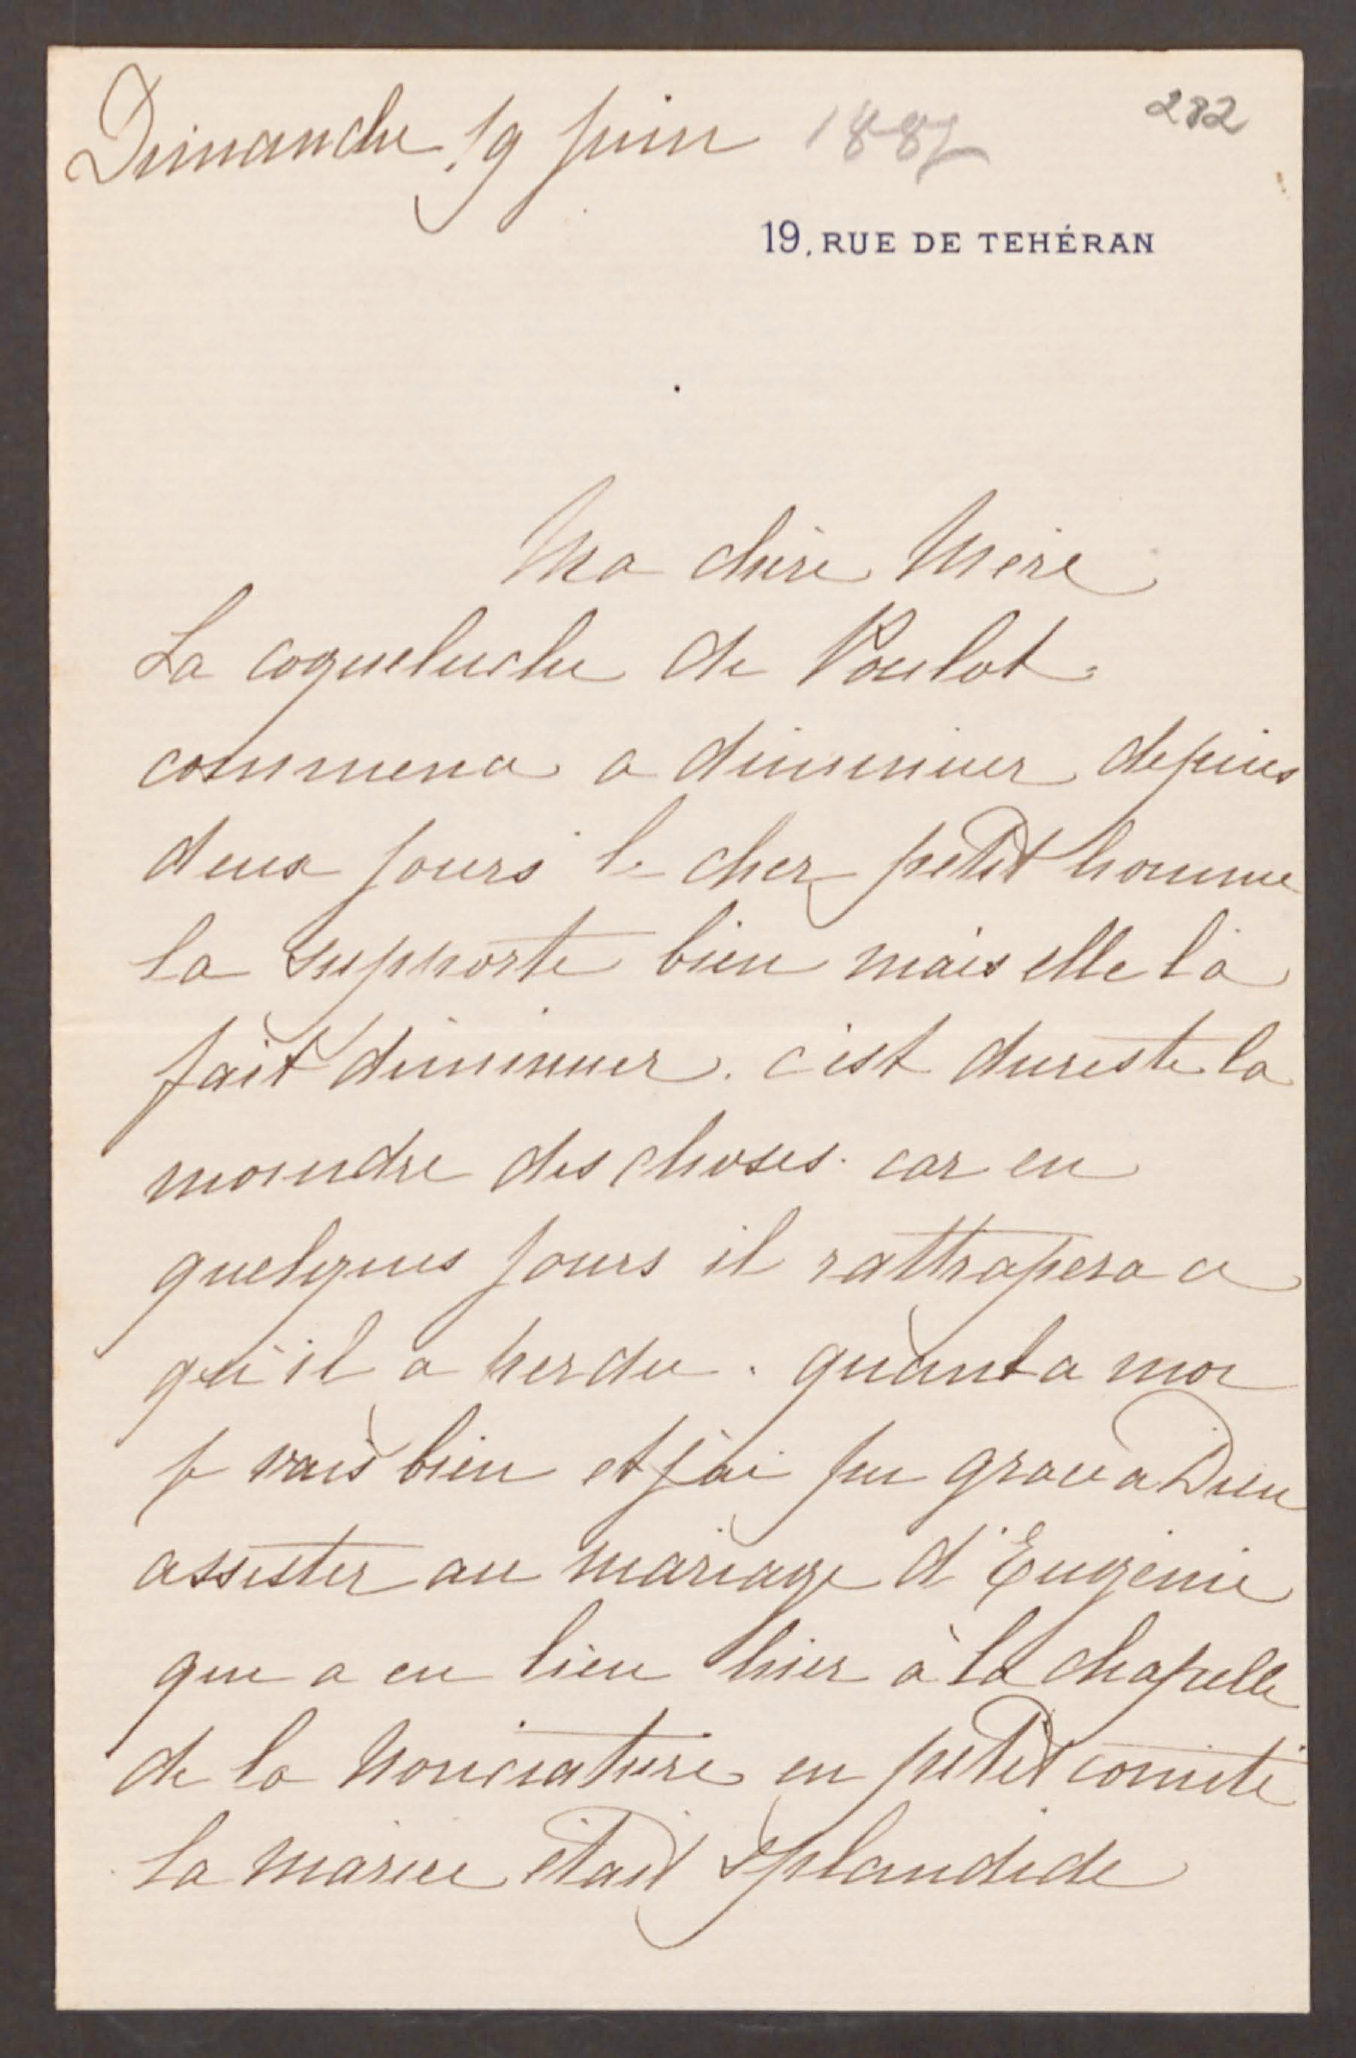 Dimanche 19 juin 1887
282
19, RUE DE TEHÉRAN
Ma chère Mère
La coqueluche de Poulot
commence a diminuer depuis
deux jours le cher petit homme
la supporte bien mais elle l'a
fait diminuer. c'est dureste la
moindre des choses. car en
quelques jours il rattrapera ce
qu'il a perdu. quant a moi
je vais bien et j'ai pu grace a Dieu
assister au mariage d'Eugénie
qui a eu lieu hier à la chapelle
de la Nonciature en petit comité
la mariée était splandide